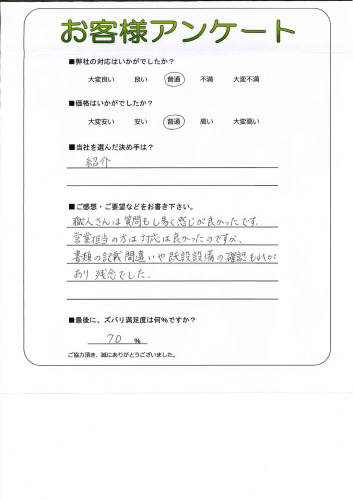 お客様アンケート
■弊社の対応はいかがでしたか？
大変良い 良い 普通 不満 大変不満
■価格はいかがでしたか？
大変安い 安い 普通 高い 大変高い
■当社を選んだ決め手は？
紹介
■ご感想・ご要望などをお書き下さい。
職人さんは質問もし易く感じが良かったです。
営業担当の方は対応は良かったのですが、
書類の記載間違いや既設設備の確認もれが
あり残念でした。
■最後に、ズバリ満足度は何%ですか？
70 %
ご協力頂き、誠にありがとうございました。